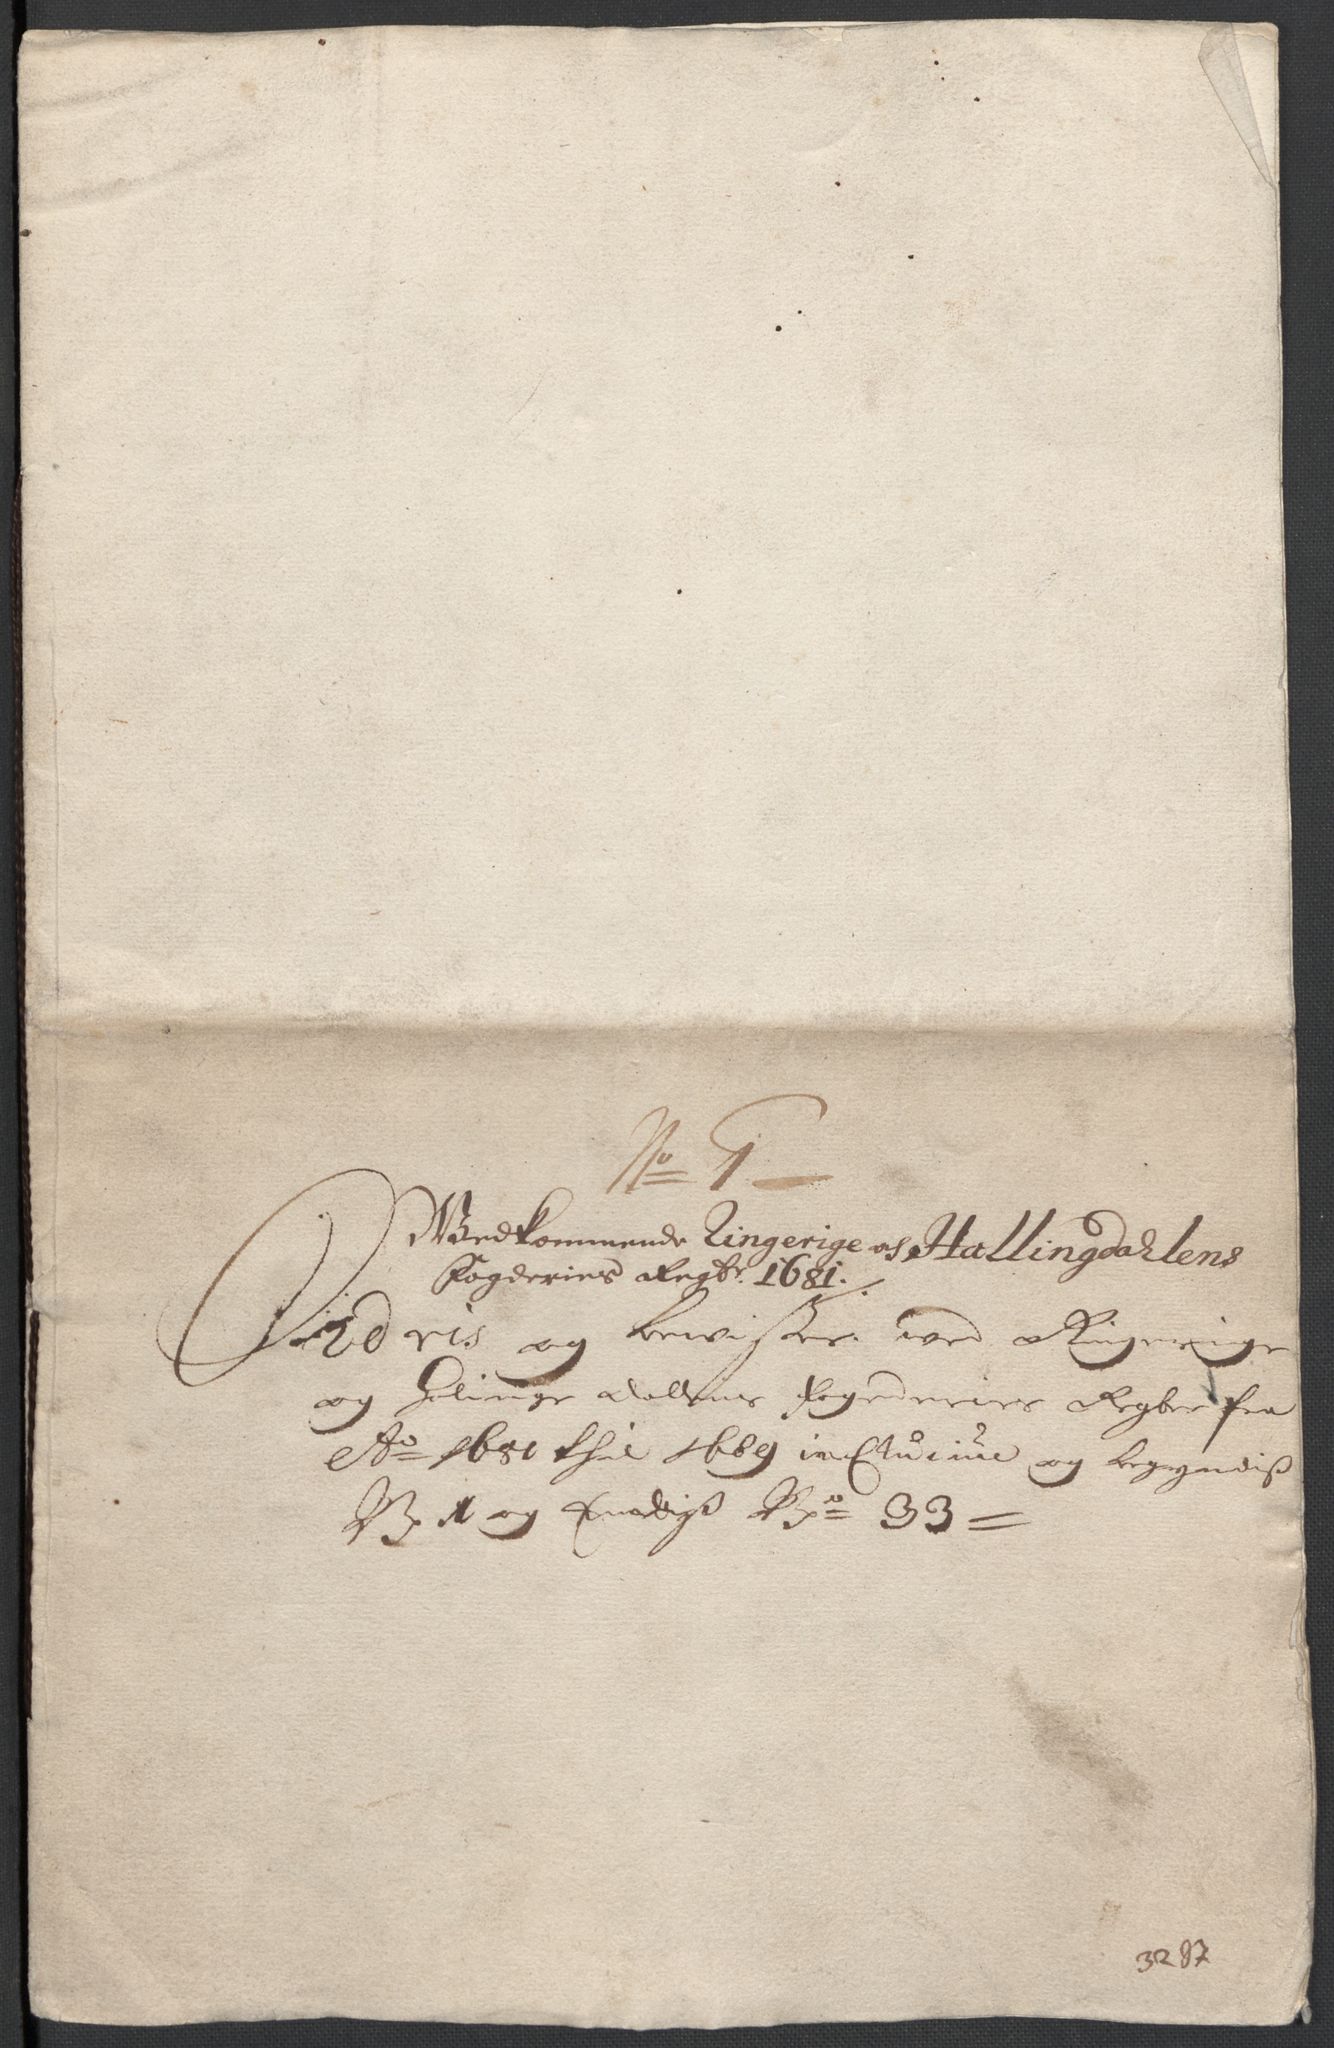 No 1
Wedkommende Ringerige og Hallingdahlens
Fogderies Regbr. 1681.
og bewiszer wed Ringerige
og Halinge dallens fogderiers Regber fra
Ao 1681 thil 1689 inclusive og begyndisz
No 1 og Endisz No 33
3287